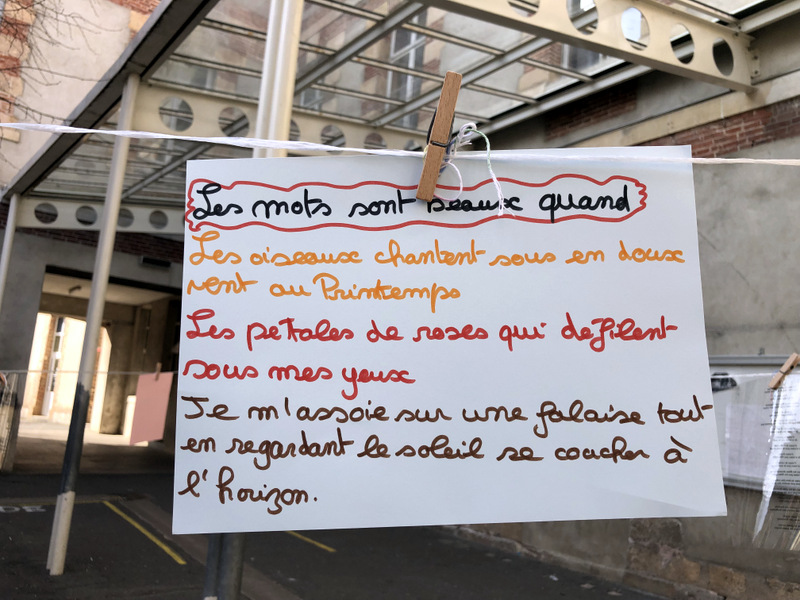 Les mots sont beaux quand
Les oiseaux chantent sous en doux
vent au Printemps
Les pétales de roses qui défilent
sous mes yeux
Je m'assoie sur une falaise tout
en regardant le soleil se coucher à
l'horizon.